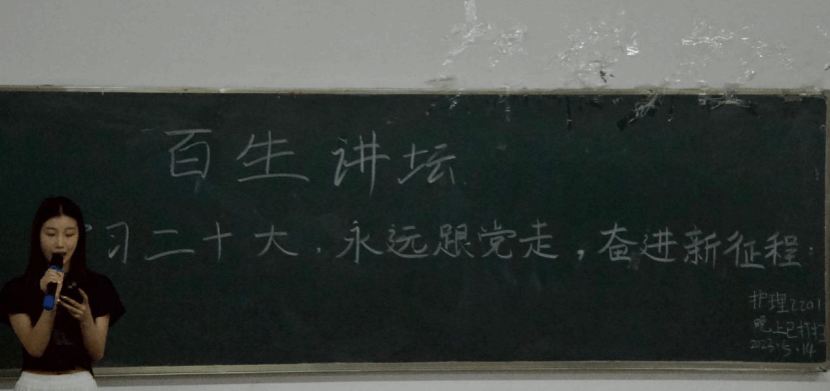 百生讲坛
习二十大,永远跟党走,奋进新征程
护理2201
晚上已打扫
2023.5.14